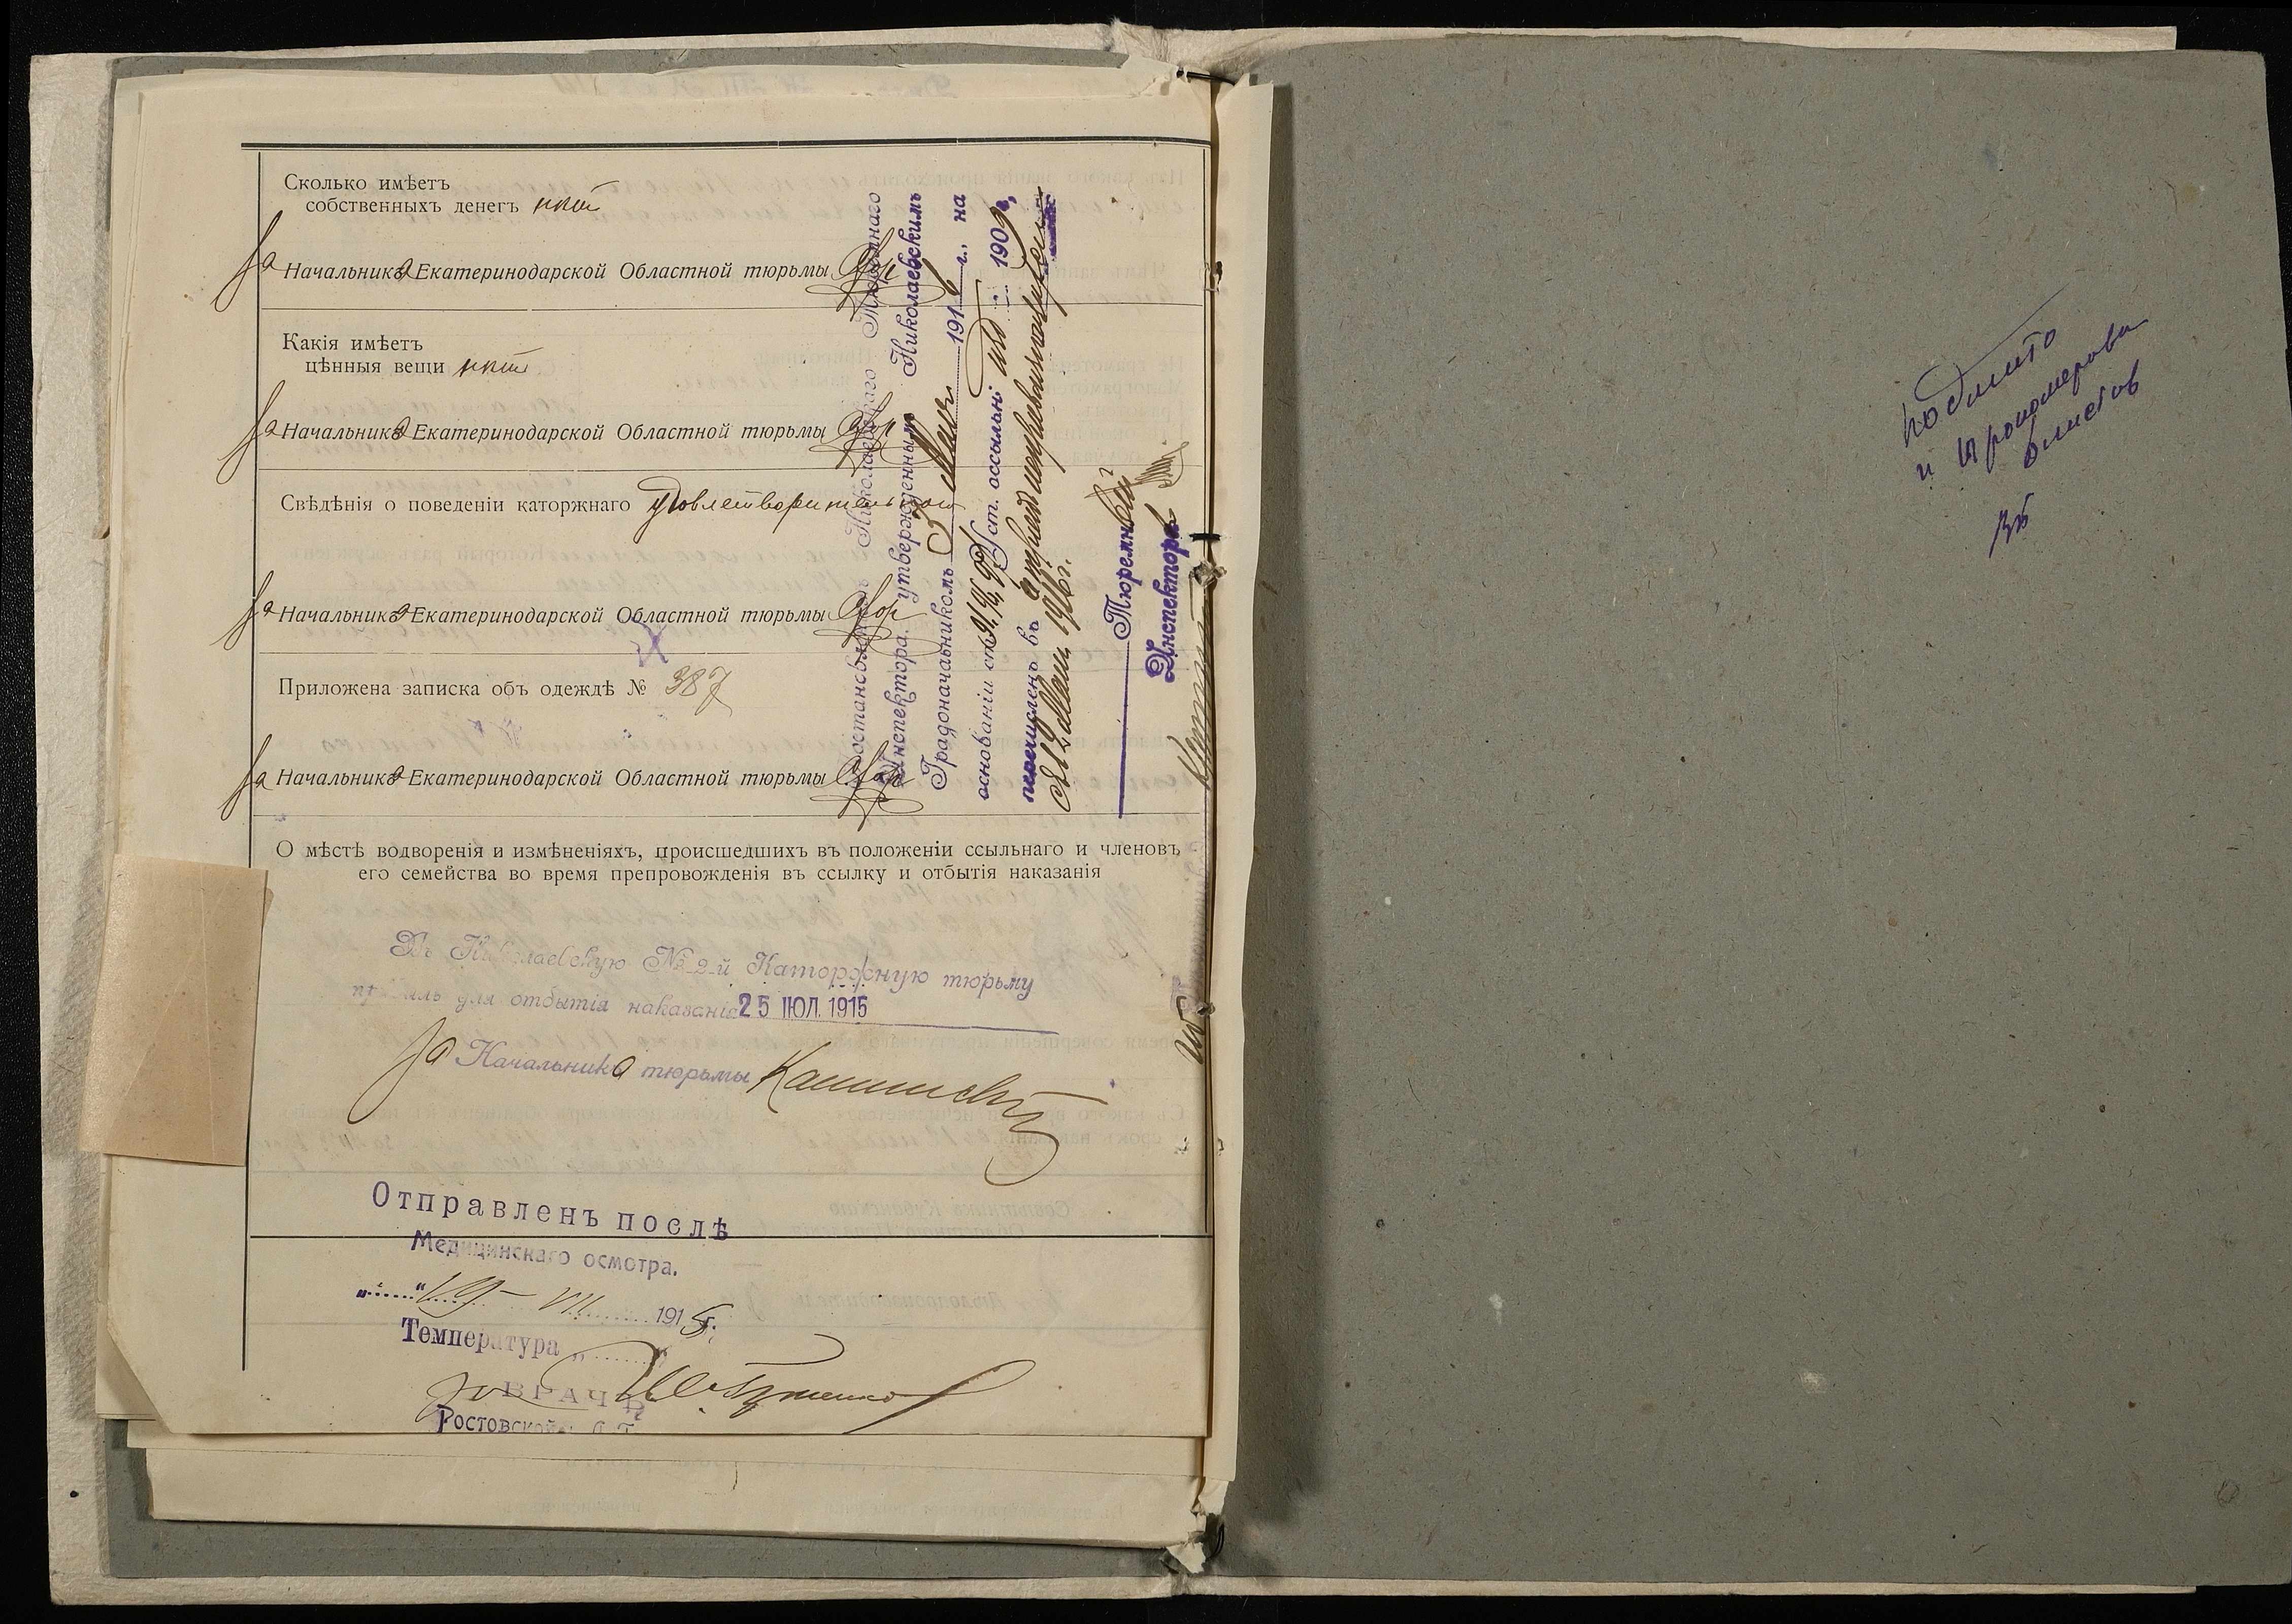 Сколько имѣетъ
собственныхъ денегъ нѣтъ
За Начальника Екатеринодарской Областной тюрьмы
Какія имѣетъ
цѣнныя вещи нѣтъ
За Начальника Екатеринодарской Областной тюрьмы
Свѣдѣнія о поведеніи каторжнаго удовлетворительнаго
За Начальника Екатеринодарской Областной тюрьмы
Приложена записка объ одеждѣ № 387
За Начальника Екатеринодарской Областной тюрьмы
О мѣстѣ водворенія и измѣненіяхъ, происшедшихъ въ положеніи ссыльнаго и членовъ
его семейства во время препровожденія въ ссылку и отбытія наказанія
Въ Николаевскую № 2-й Каторжную тюрьму
для отбытія наказанія 25 ІЮЛ. 1915
За Начальника тюрьмы
Отправленъ послѣ
Медицинскаго осмотра.
19 VII 1915 г.
Температура
ВРАЧЪ
Ростовской
Николаевскаго Тюремнаго
Инспектора утвержденнымъ Николаевскимъ
Градоначальникомъ 1916 г., на
основаніи ст. Уст. о ссыльн 1909 г.,
въ
12 Мая 1916 г.
Тюремный
Инспекторъ
подшито
и пронумерован
листов